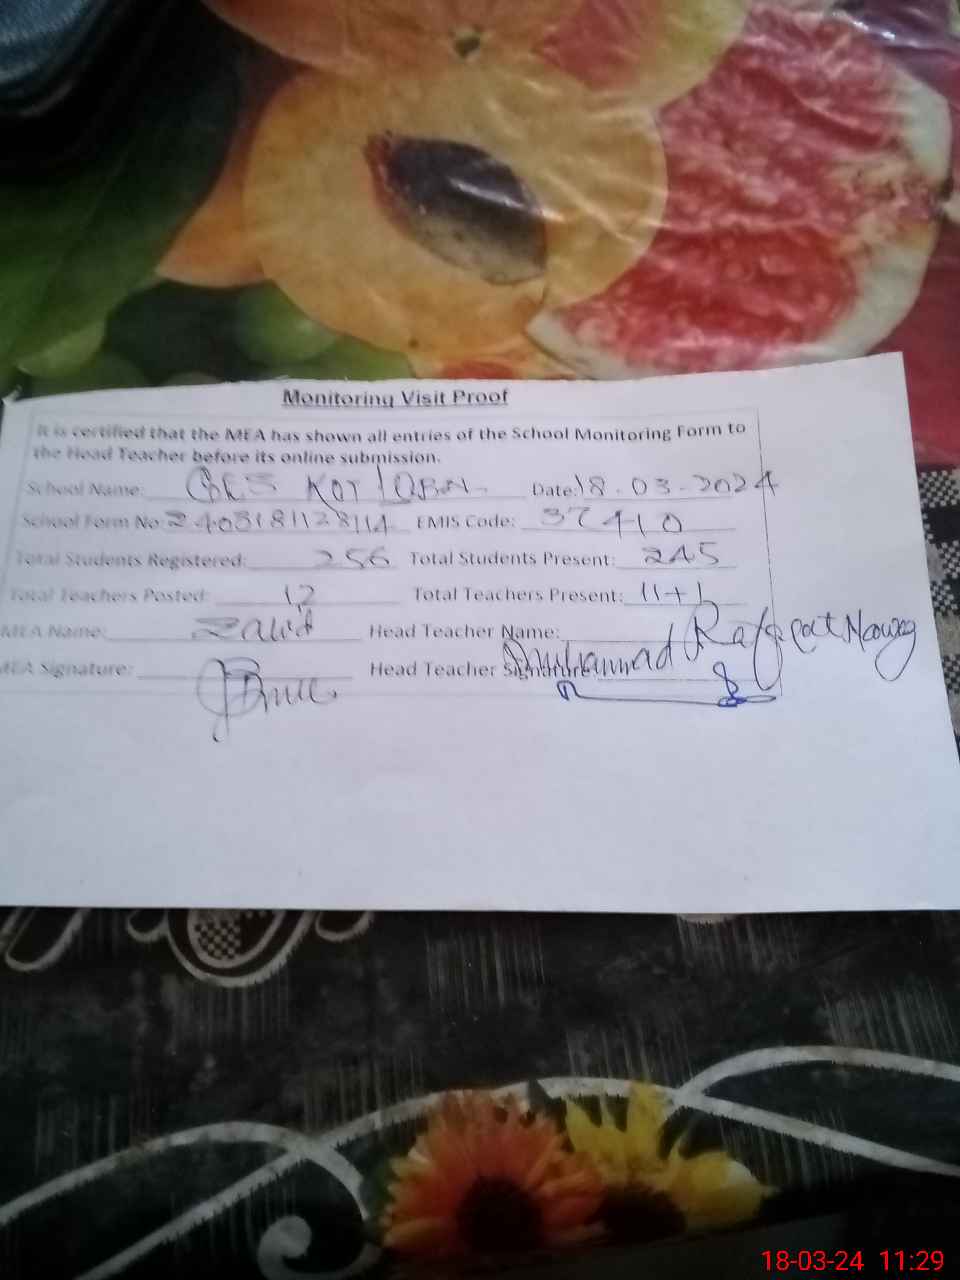 Monitoring Visit Proof
It is certified that the MEA has shown all entries of the School Monitoring Form to
the Head Teacher before its online submission.
School Name: KOT Date: 18.03.2024
School Form No: EMIS Code: 37410
Total Students Registered: 256 Total Students Present: 245
Total Teachers Posted: 12 Total Teachers Present: 11+1
MEA Name: Head Teacher Name:
MEA Signature: Head Teacher Signature: Muhammad
18-03-24 11:29